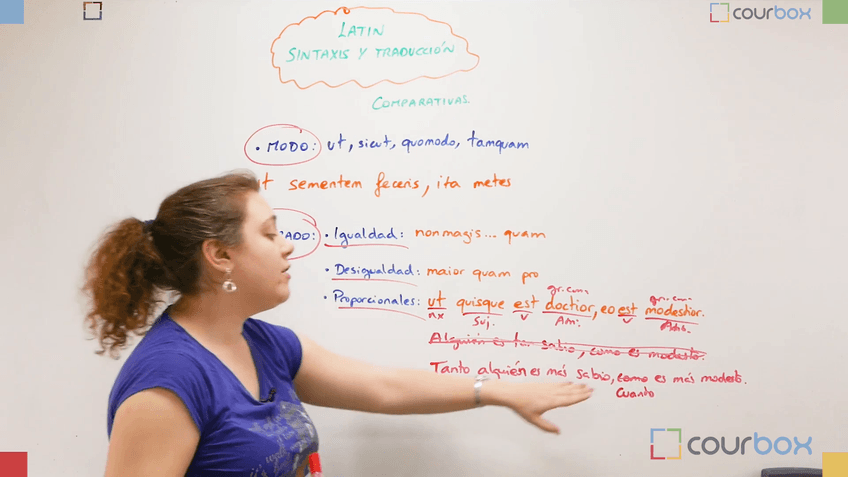 courbox
LATIN
SINTAXIS Y TRADUCCIÓN
COMPARATIVAS.
• MODO: ut, sicut, quomodo, tamquam
sementem feceris, ita metes
• Igualdad: non magis... quam
• Desigualdad: maior quam pro
gr. com. gr. com.
• Proporcionales: ut quisque est doctior, eo est modestior.
nx Suj. V Atri. V Atrib.
Alguien es tan sabio, como es modesto.
Tanto alguien es más sabio, como es más modesto.
Cuanto
courbox